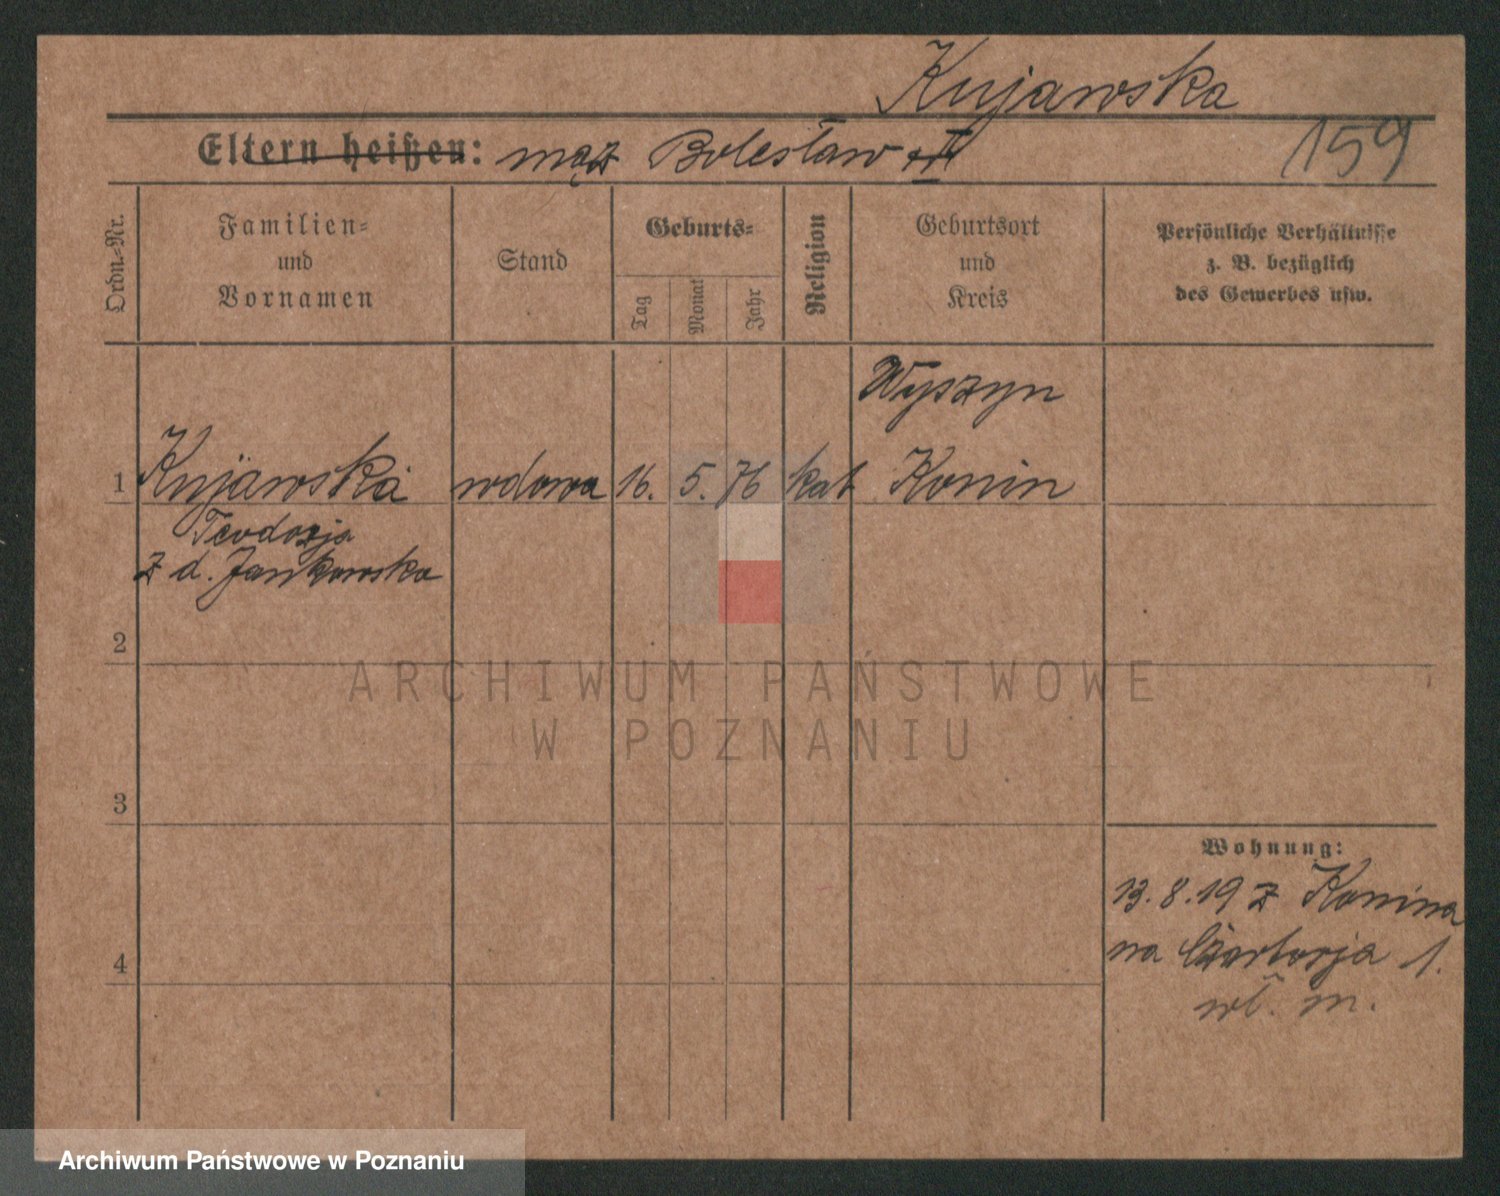 Kujawska
159
Eltern heißen: mąż Bolesław
Ordn.-Nr.
Familien-
und
Vornamen
Stand
Geburts-
Tag
Monat
Jahr
Religion
Geburtsort
und
Kreis
Persönliche Verhältnisse
z. B. bezüglich
des Gewerbes usw.
Wyszyn
1 Kujawska wdowa 16. 5. 76 kat Konin
Teodozja
z d. Jankowska
2
ARCHIWUM PAŃSTWOWE
W POZNANIU
3
Wohnung:
13.8.19 z Konina
na Czartorja 1.
4
wł. m.
Archiwum Państwowe w Poznaniu